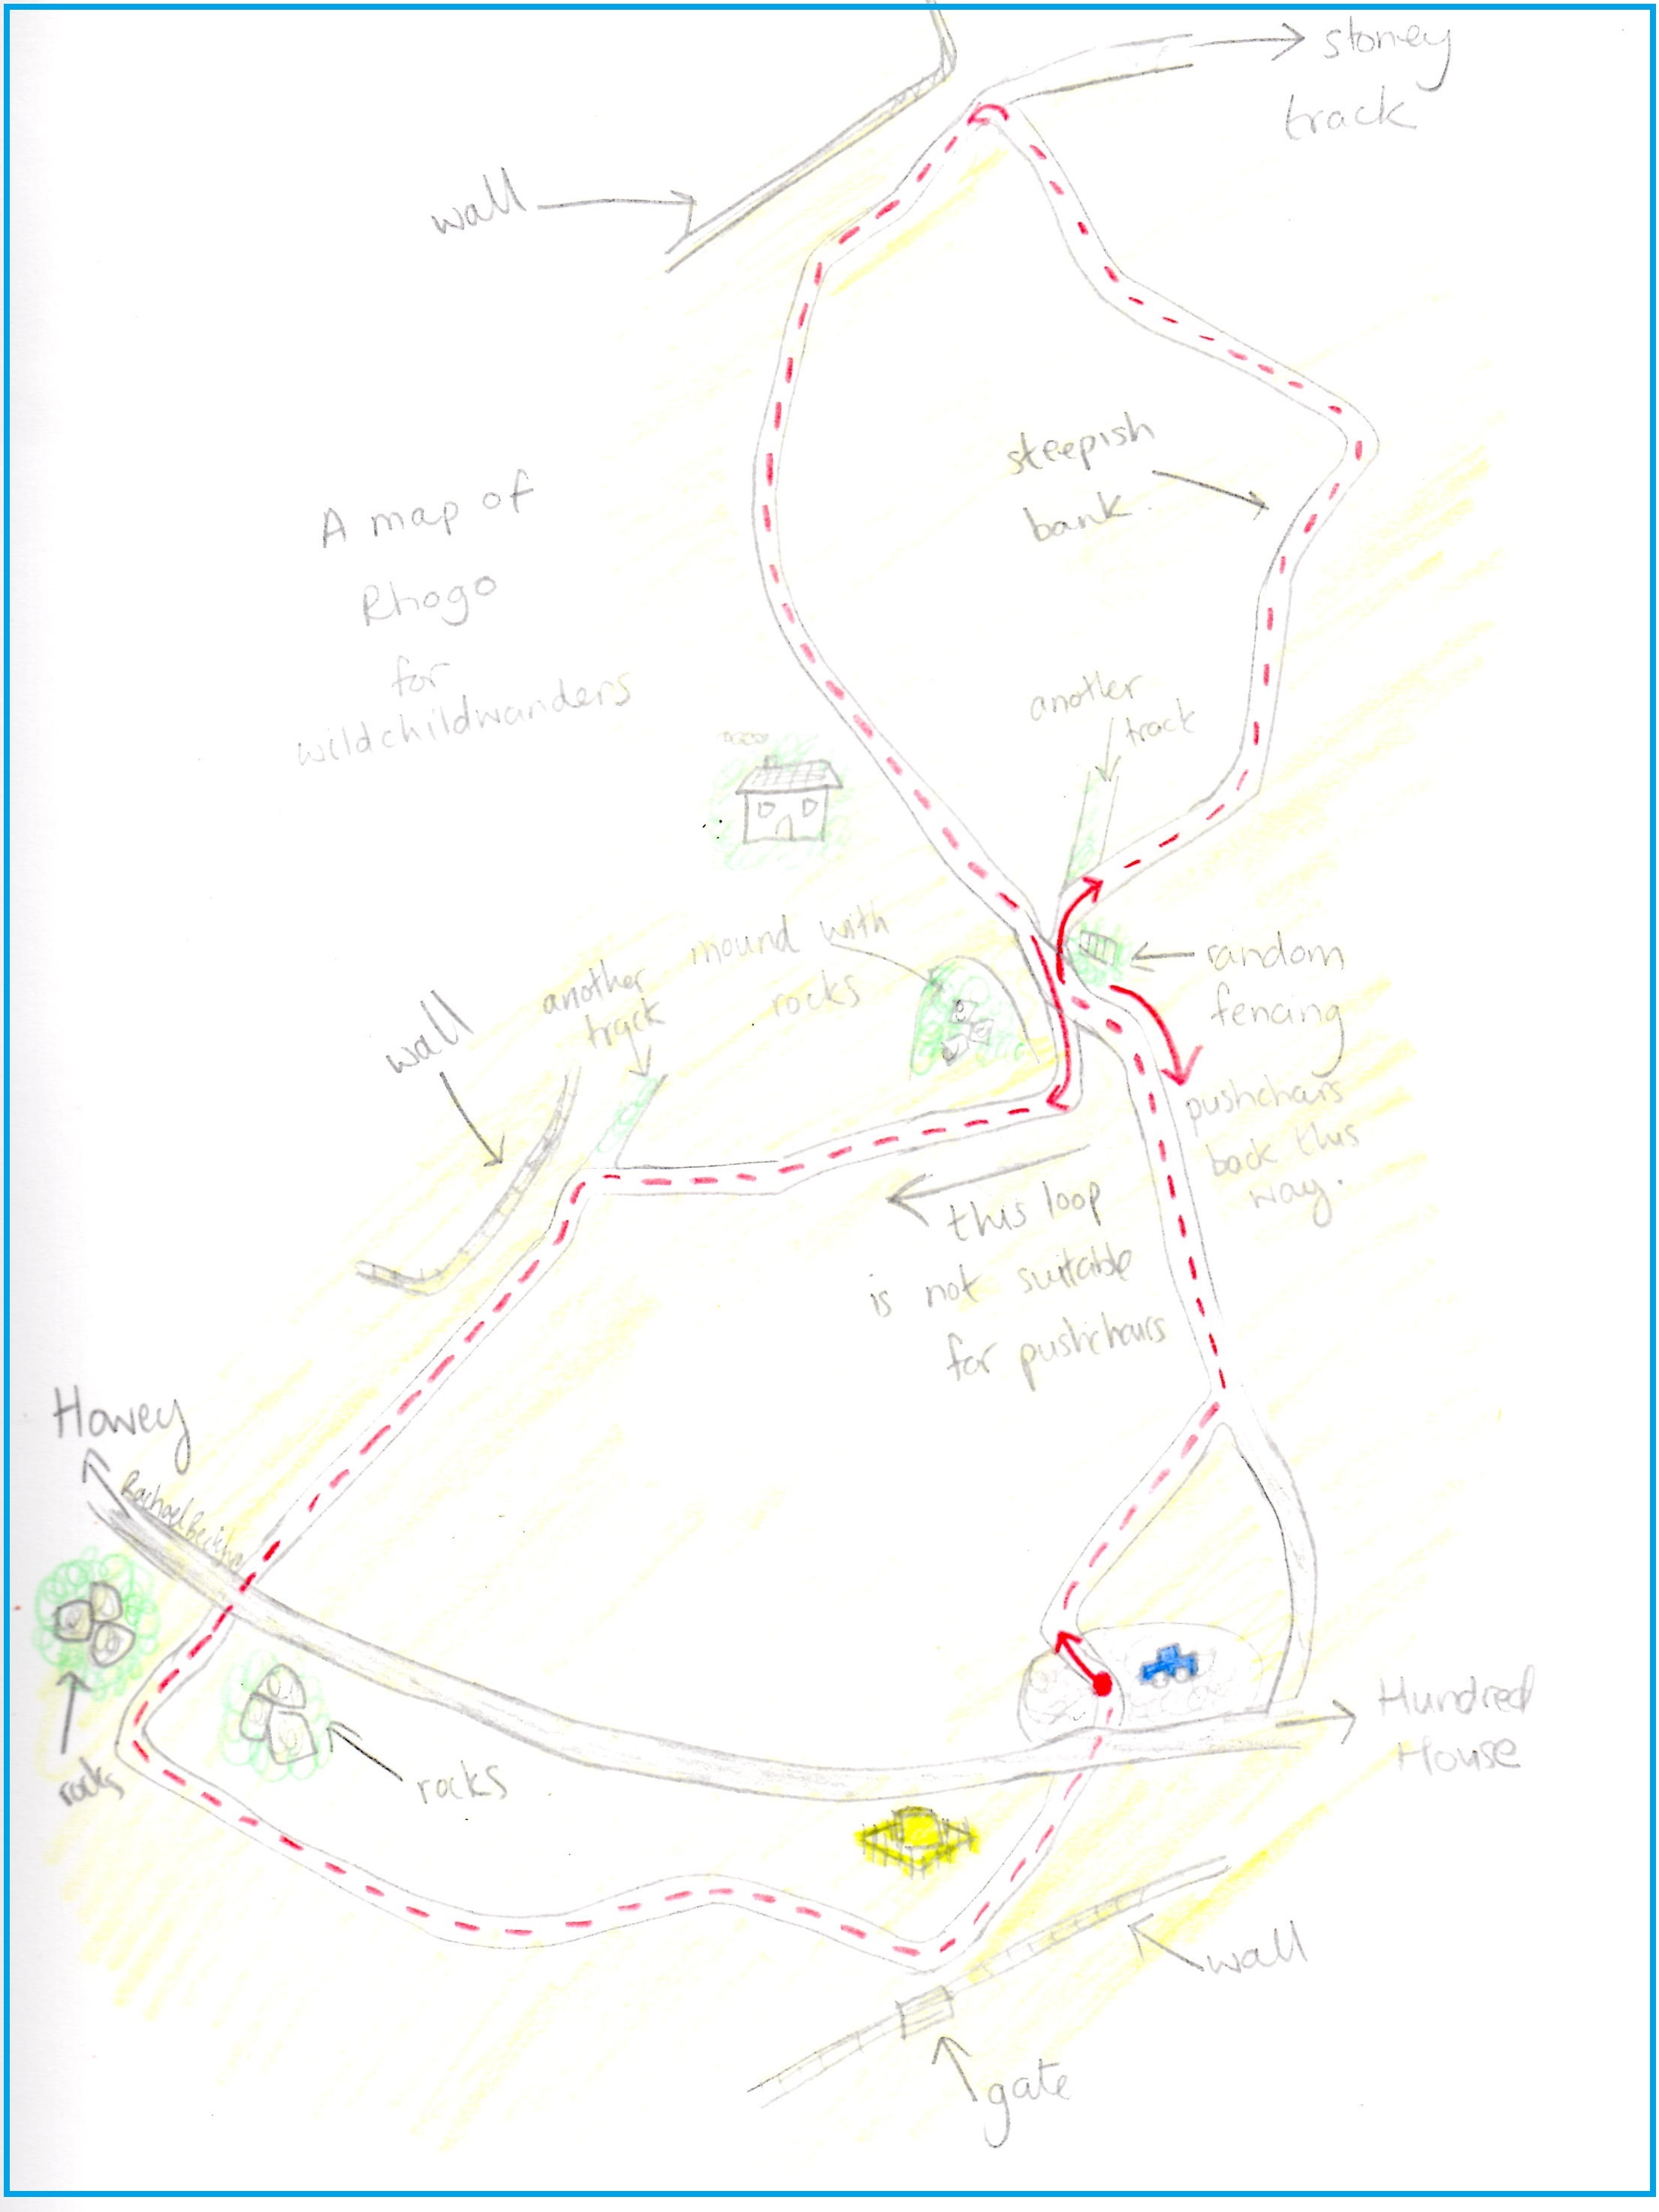 stoney
track
wall
A map of
Rhogo
for
wildchildwanders
steepish
bank.
another
track
mound with
rocks
random
fencing
another
track
wall
pushchairs
back this
way.
this loop
is not suitable
for pushchairs
Howey
rocks
rocks
Hundred
House
wall
gate